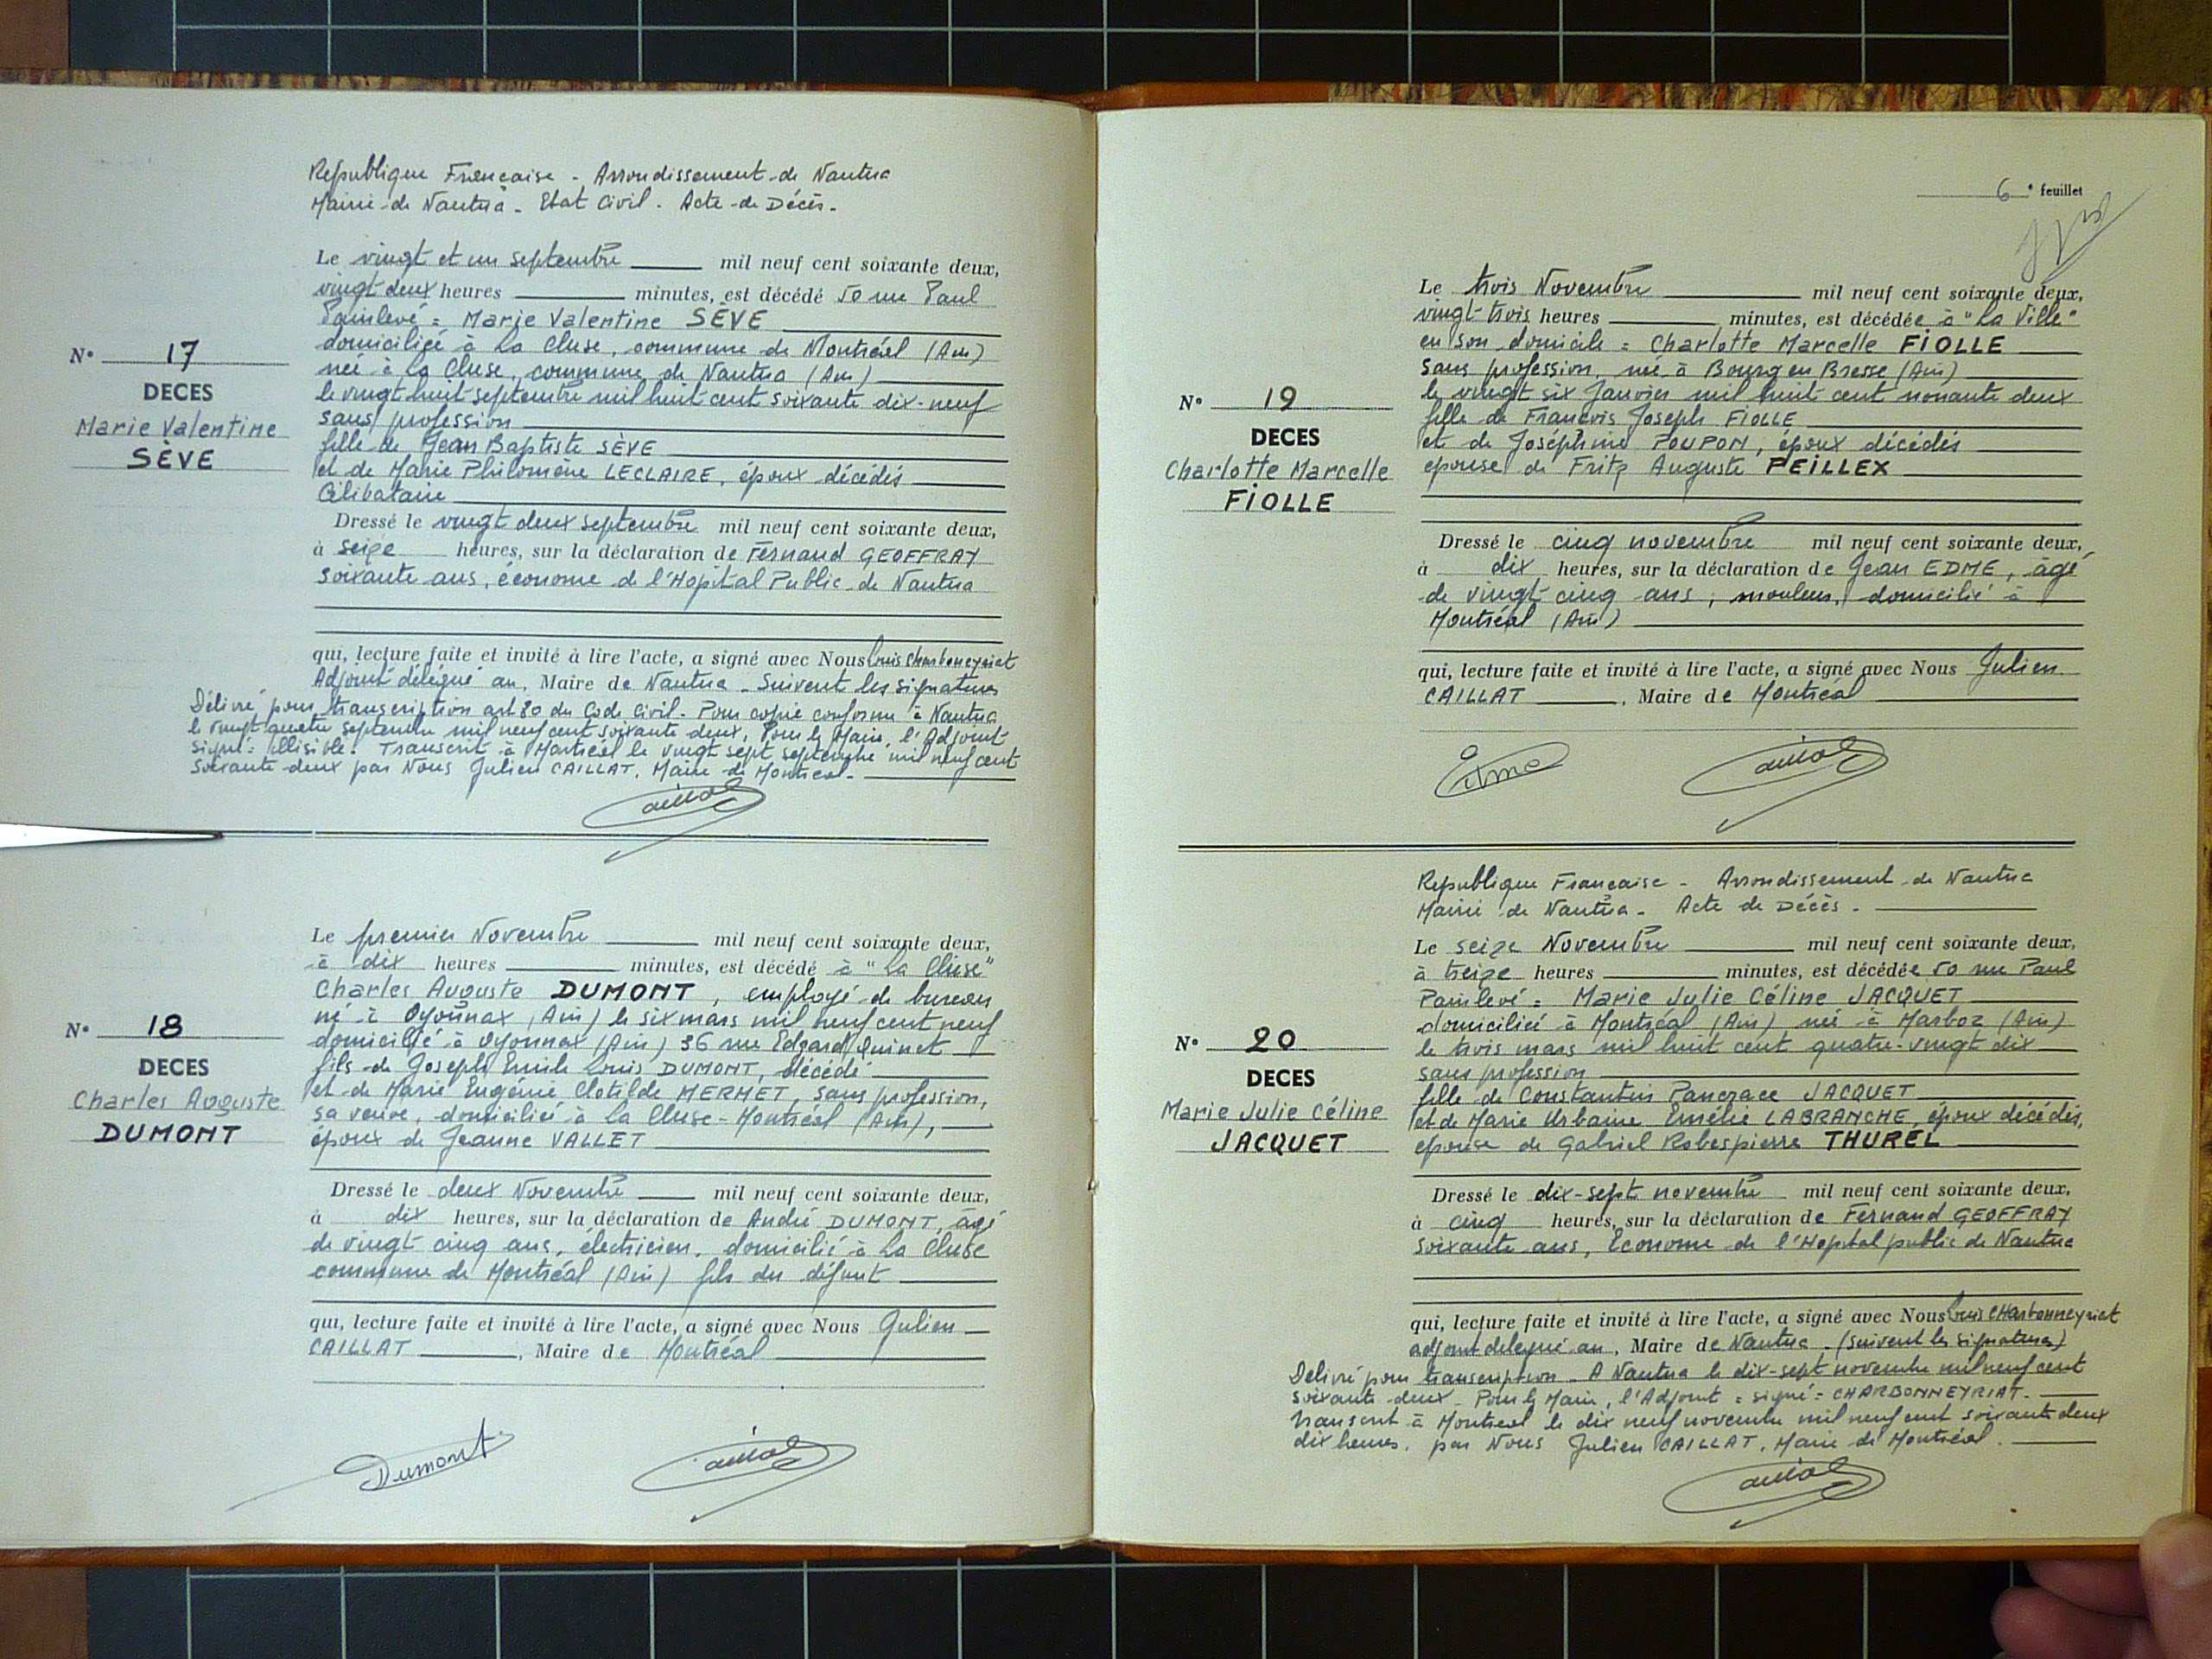 République Française - Arrondissement de Nantua
Mairie de Nantua - Etat Civil - Acte de Décès -
Le vingt et un septembre mil neuf cent soixante deux,
vingt deux heures minutes, est décédé 50 rue Paul
Painlevé = Marie Valentine SÈVE
domiciliée à La Cluse, commune de Montréal (Ain)
née à La Cluse, commune de Nantua (Ain)
le vingt huit septembre mil huit cent soixante dix-neuf
sans profession
fille de Jean Baptiste SÈVE
et de Marie Philomène LECLAIRE, époux décédés
Célibataire
Dressé le vingt deux septembre mil neuf cent soixante deux,
à seize heures, sur la déclaration de Fernand GEOFFRAY
soixante ans, économe de l'Hopital Public de Nantua
qui, lecture faite et invité à lire l'acte, a signé avec Nous Louis Charbonneyriat
Adjoint délégué au, Maire de Nantua - Suivent les signatures
Délivré pour transcription art 80 du Code Civil - Pour copie conforme à Nantua
le vingt quatre septembre mil neuf cent soixante deux, Pour le Maire, l'Adjoint
signé = illisible. Transcrit à Montréal le vingt sept septembre mil neuf cent
soixante deux par Nous Julien CAILLAT, Maire de Montréal -
N° 17
DECES
Marie Valentine
SÈVE
Le premier Novembre mil neuf cent soixante deux,
à dix heures minutes, est décédé à "La Cluse"
Charles Auguste DUMONT, employé de bureau
né à Oyonnax (Ain) le six mars mil neuf cent neuf
domicilié à Oyonnax (Ain) 36 rue Edgard Quinet
fils de Joseph Emile Louis DUMONT, décédé
et de Marie Eugénie Clotilde MERMET, sans profession,
sa veuve, domiciliée à La Cluse-Montréal (Ain),
époux de Jeanne VALLET
Dressé le deux Novembre mil neuf cent soixante deux,
à dix heures, sur la déclaration de André DUMONT, âgé
de vingt cinq ans, électricien, domicilié à La Cluse
commune de Montréal (Ain) fils du défunt
qui, lecture faite et invité à lire l'acte, a signé avec Nous Julien
CAILLAT, Maire de Montréal
Dumont
N° 18
DECES
Charles Auguste
DUMONT
6e feuillet
Le trois Novembre mil neuf cent soixante deux,
vingt-trois heures minutes, est décédée à "La Ville"
en son domicile = Charlotte Marcelle FIOLLE
sans profession, née à Bourg en Bresse (Ain)
le vingt six Janvier mil huit cent nonante deux
fille de François Joseph FIOLLE
et de Joséphine POUPON, époux décédés
epouse de Fritz Auguste PEILLEX
Dressé le cinq novembre mil neuf cent soixante deux,
à dix heures, sur la déclaration de Jean EDME, âgé
de vingt cinq ans, mouleur, domicilié à
Montréal (Ain)
qui, lecture faite et invité à lire l'acte, a signé avec Nous Julien
CAILLAT, Maire de Montréal
Edme
N° 19
DECES
Charlotte Marcelle
FIOLLE
République Française - Arrondissement de Nantua
Mairie de Nantua - Acte de Décès -
Le seize Novembre mil neuf cent soixante deux,
à treize heures minutes, est décédée 50 rue Paul
Painlevé = Marie Julie Céline JACQUET
domiciliée à Montréal (Ain) née à Marboz (Ain)
le trois mars mil huit cent quatre-vingt dix
sans profession
fille de Constantin Pancrace JACQUET
et de Marie Urbaine Emélie LABRANCHE, époux décédés,
épouse de Gabriel Robespierre THUREL
Dressé le dix-sept novembre mil neuf cent soixante deux,
à cinq heures, sur la déclaration de Fernand GEOFFRAY
soixante ans, Econome de l'Hopital public de Nantua
qui, lecture faite et invité à lire l'acte, a signé avec Nous Louis CHarbonneyriat
adjoint delegué au, Maire de Nantua. (suivent les signatures)
Délivré pour transcription - A Nantua le dix-sept novembre mil neuf cent
soixante-deux - Pour le Maire, l'Adjoint = signé = CHARBONNEYRIAT -
transcrit à Montréal le dix neuf novembre mil neuf cent soixante deux
dix heures, par Nous Julien CAILLAT, Maire de Montréal.
N° 20
DECES
Marie Julie Céline
JACQUET